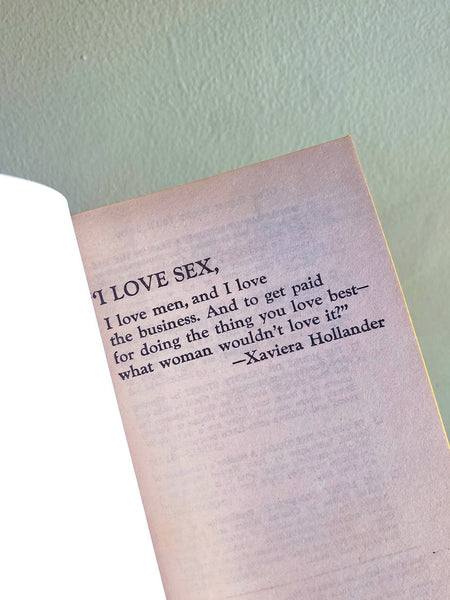 "I LOVE SEX,
I love men, and I love
the business. And to get paid
for doing the thing you love best—
what woman wouldn't love it?"
—Xaviera Hollander